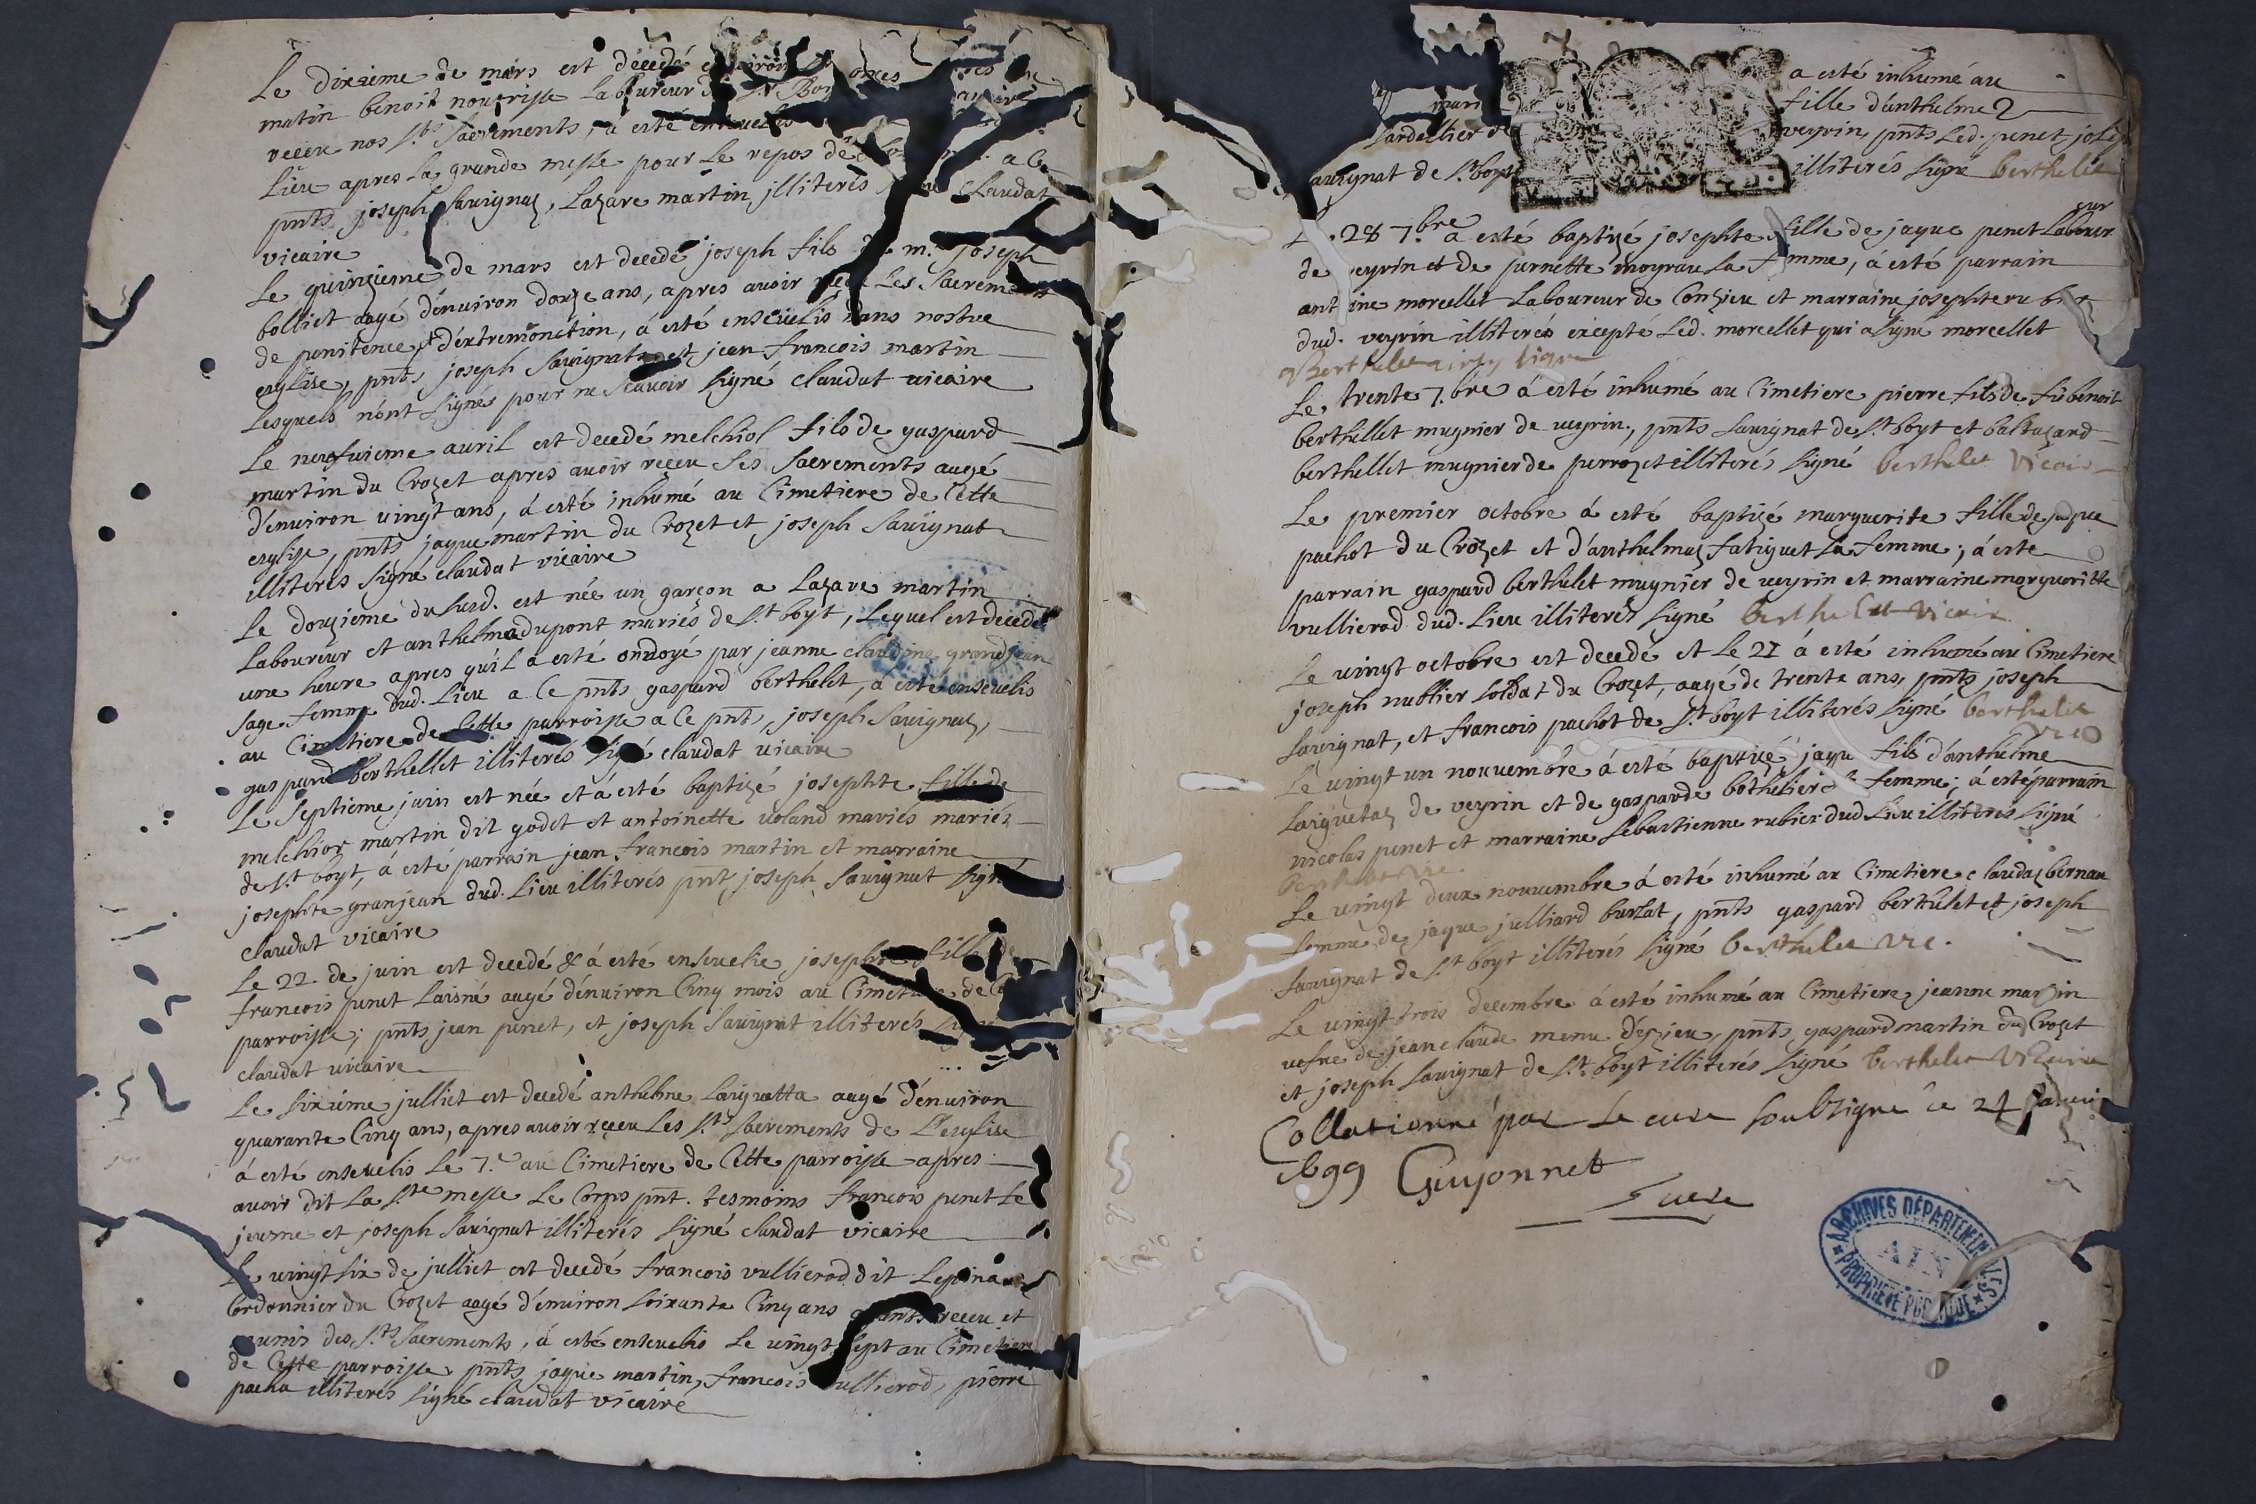 Le dixieme de mars est decedé
matin benoit nourrisse Laboureur de St
receu nos Sts Sacrements, a esté ensevelis
Lieu apres La grande messe pour Le repos de a Ce
pnts joseph Savignaz, Lazare martin illiterés Claudat
vicaire
Le quinzieme de mars est decedé joseph fils de m. joseph
bolliet aagé d'environ douze ans, apres avoir receu Les Sacrements
de penitence, et d'extremonction, a esté ensevelis dans nostre
esglise, pnts joseph Savignat et jean francois martin
Lesquels n'ont Signés pour ne Scavoir Signé claudat vicaire
Le neufvieme avril est decedé melchiol fils de gaspard
martin du Crozet apres avoir reçeu Ses Sacrements aagé
d'environ vingt ans, a esté inhumé au Cimetiere de Cette
esglise, pnts jaque martin du Crozet et joseph Savignat
illiterés Signé claudat vicaire
Le douzieme dususd. est née un garçon a Lazare martin
Laboureur et anthelma dupont mariés de St boyt, Lequel est decedé
une heure apres qu'il a esté ondoyé par jeanne claudine grandjean
Sage femme dud. Lieu a Ce pnts gaspard berthelet, a esté ensevelis
au Cimetiere de Cette parroisse a Ce pnts, joseph Savignaz,
gaspard berthellet illiterés Signé claudat vicaire
Le Septieme juin est née et a esté baptizé josephte fille de
melchior martin dit godet et antoinette voland mariés mariés
de St boyt, a esté parrain jean francois martin et marraine
josephte granjean dud. Lieu illiterés pnt joseph Savignat Signé
claudat vicaire
Le 22 de juin est decedé & a esté ensevelie josephte fille de
francois penet Laisné aagé d'environ Cinq mois au Cimetiere de
parroisse; pnts jean penet, et joseph Savignat illiterés
claudat vicaire
Le Sixieme julliet est decedé anthelme Laiguetta aagé d'environ
quarante Cinq ans, apres avoir reçeu Les Sts Sacrements de L'esglise
a esté ensevelis Le 7.e au Cimetiere de Cette parroisse apres
avoir dit La Ste messe Le Corps pnt. tesmoins francois penet Le
jeusne et joseph Savignat illiterés Signé claudat vicaire
Le vingt Six de julliet est decedé francois vullierod dit
Cordonnier du Crozet aagé d'environ Soixante Cinq ans receu et
munis des Sts Sacrements, a esté ensevelis Le vingt Sept au Cimetiere
de Cette parroisse pnts jaque martin, francois vullierod, pierre
pacha illiterés Signé claudat vicaire
a esté inhumé au
fille d'anthelme
veyrin, pnts Led. penet
Savignat de St boyt illiterés Signé berthelet
Le 28 7.bre a esté baptizé josephte fille de jaque penet Laboureur
de veyrin et de pernette moyrau La femme, a esté parrain
antoine morcellet Laboureur de Conzieu et marraine josephte
dud. veyrin illiterés excepté Led. morcellet qui a Signé morcellet
Berthelet
Le trente 7.bre a esté inhumé au Cimetiere pierre fils de fû benoit
berthellet mugnier de veyrin, pnts Savignat de St boyt et baltazard
berthellet mugnier de perrozet illiterés Signé berthelet vicaire
Le premier octobre a esté baptizé marguerite fille de jaque
pachot du Crozet et d'anthelmaz fatiguet Sa femme; a esté
parrain gaspard berthelet mugnier de veyrin et marraine morgueritte
vullierod dud. Lieu illiterés Signé berthelet vicair
Le vingt octobre est decedé et Le 21 a esté inhumé au Cimetiere
joseph nublier Soldat du Crozet, aagé de trente ans, pnts joseph
Savignat, et francois pachot de St boyt illiterés Signé berthelet
vic
Le vingt un nouvembre a esté baptizé jaque fils d'anthelme
Laiguetaz de veyrin et de gasparde bothelier Sa femme; a esté parrain
nicolas penet et marraine Sebastienne rubier dud. Lieu illiterés Signé
berthelet vic
Le vingt deux nouvembre a esté inhumé au Cimetiere claudaz bernau
femme de jaque julliard burlat, pnts gaspard berthelet et joseph
Savignat de St boyt illiterés Signé berthelet vic.
Le vingt trois decembre a esté inhumé au Cimetiere jeanne martin
vefve de jean claude menu d'ezieu, pnts gaspard martin du Crozet
et joseph Savignat de St boyt illiterés Signé berthelet Vicaire
Collationné par Le curé Soubsigné ce 24 Janvier
1699 Guyonnet
curé
ARCHIVES DÉPARTEMENTALES
AIN
PROPRIÉTÉ PUBLIQUE